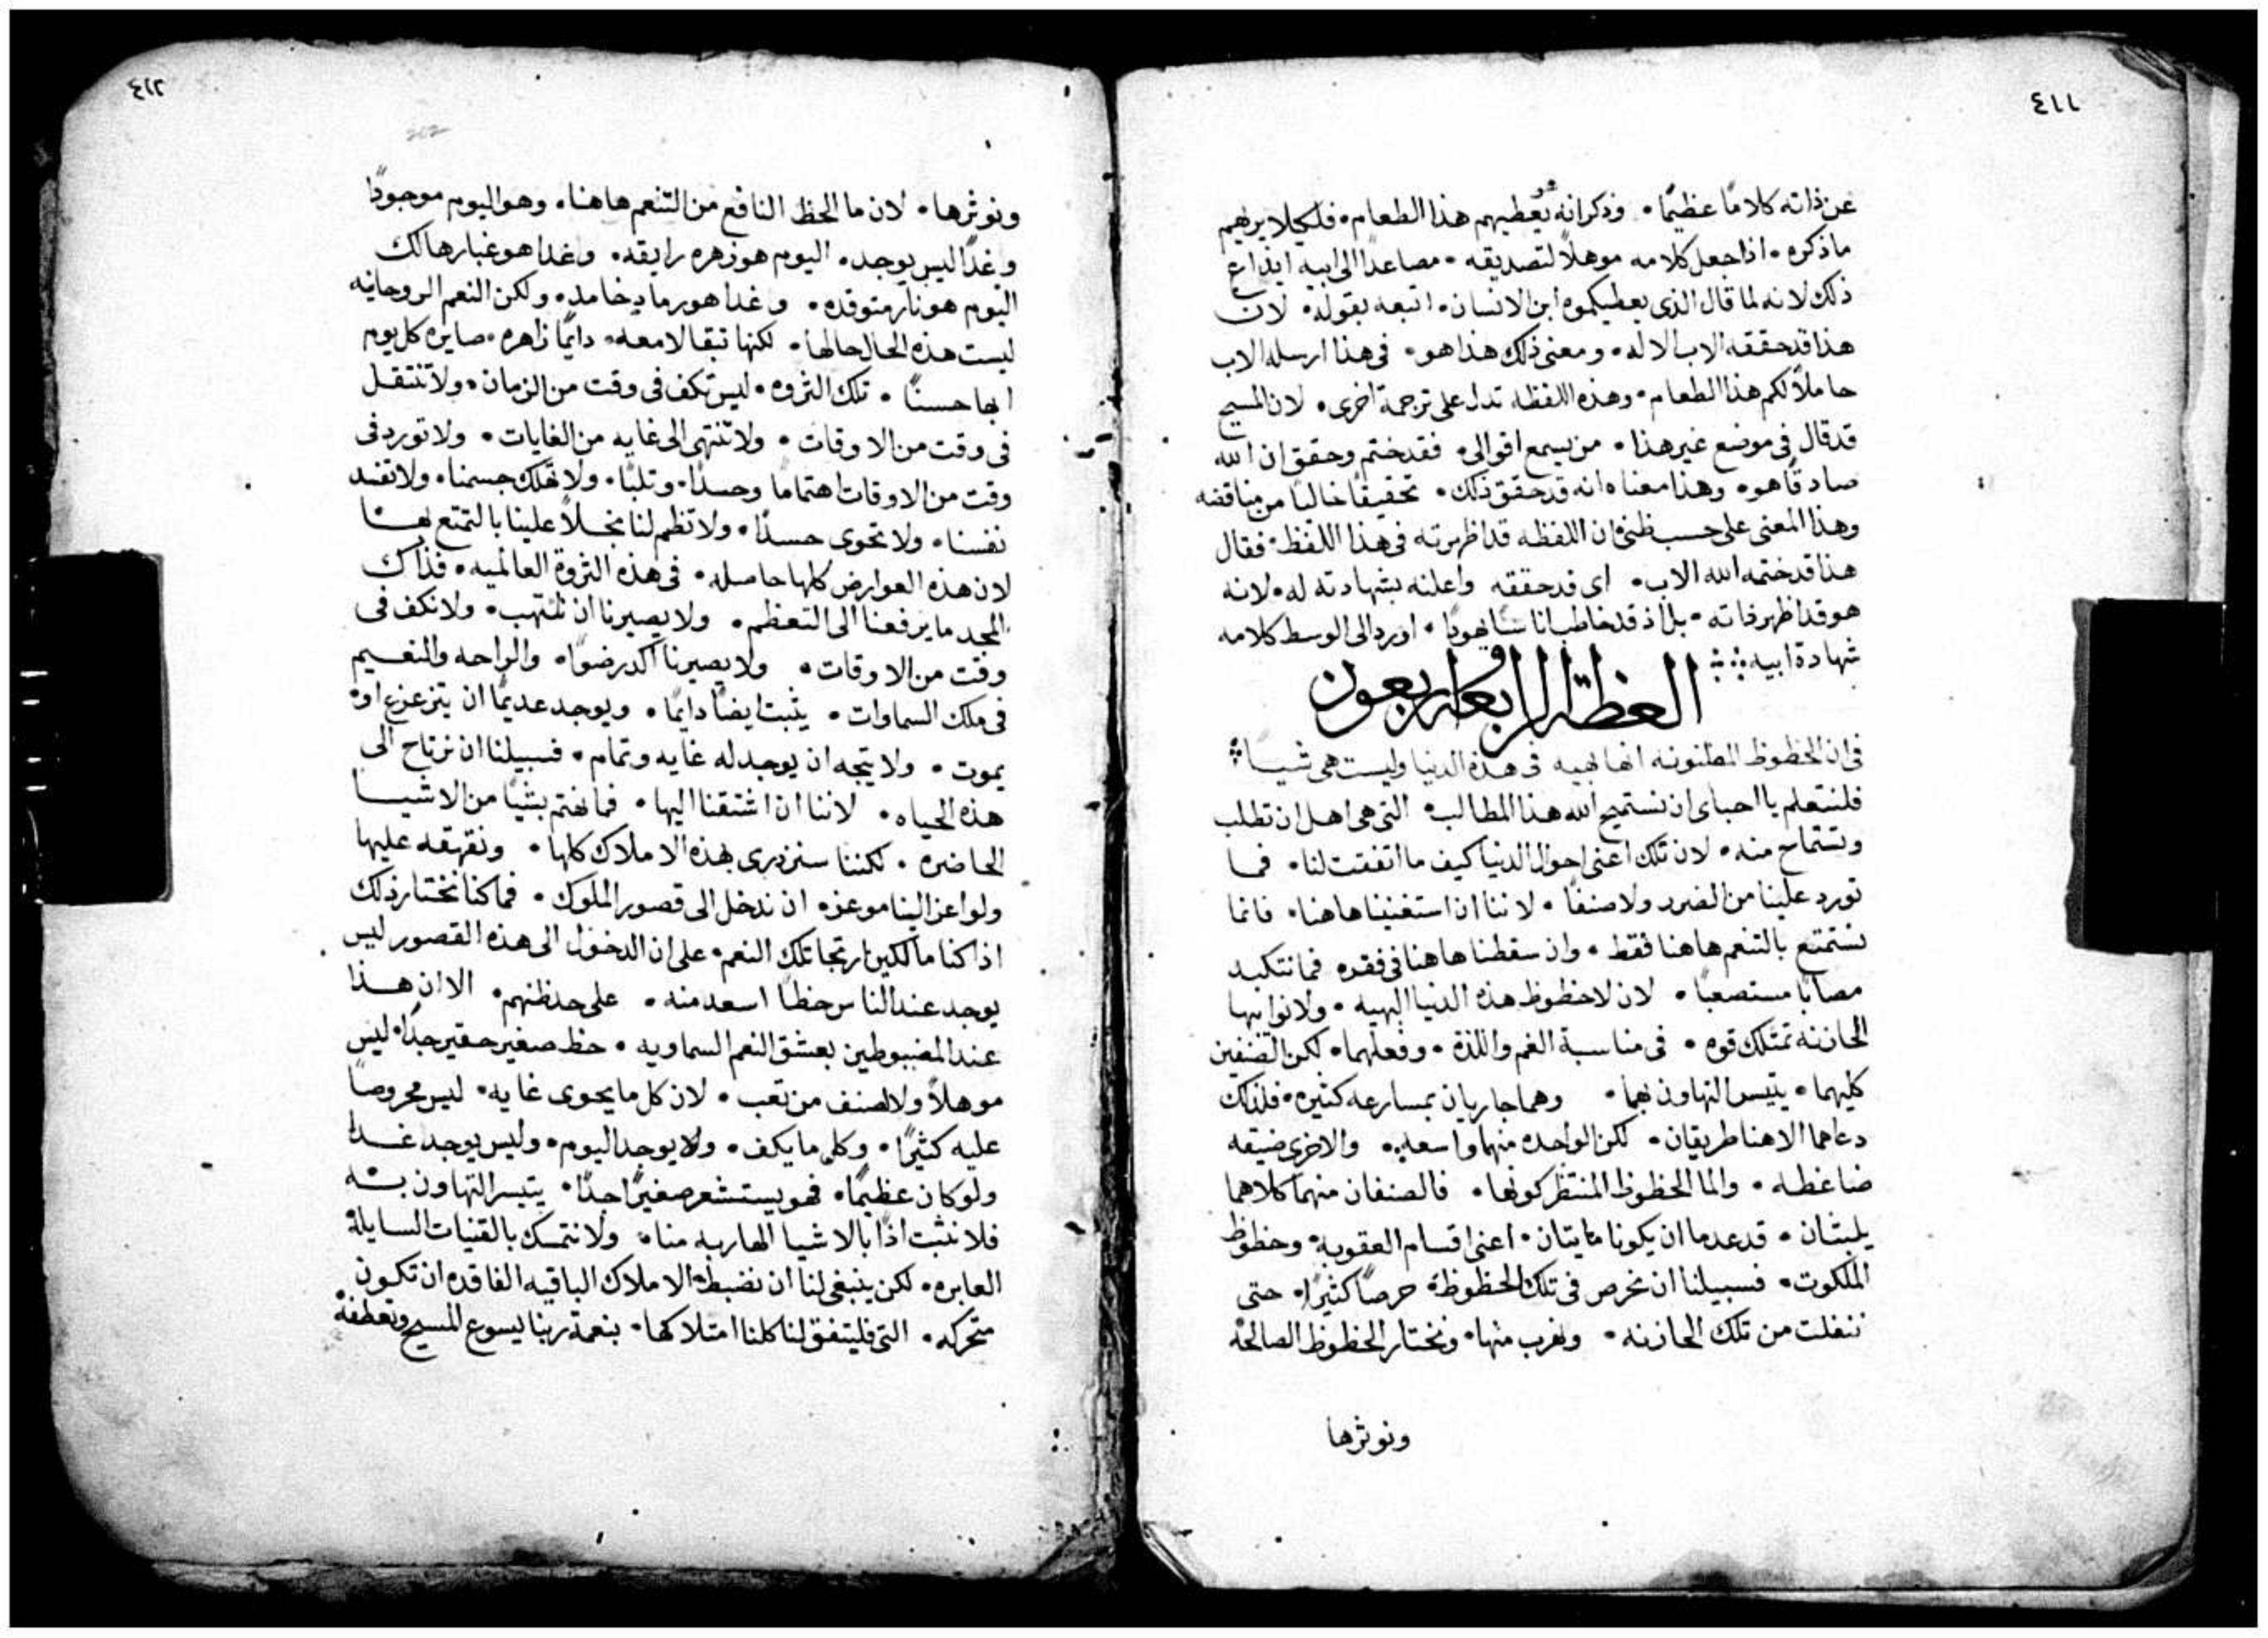 ٤١١
عن ذاته كلامًا عظيمًا • وذكر انه هو يعطيهم هذا الطعام • فلكيلا يريهم
ما ذكره • اذا جعل كلامه موهلاً لتصديقه • مصاعدًا الى ابيه ابتداع
ذلك لانه لما قال الذى يعطيكموه ابن الانسان • اتبعه بقوله • لان
هذا قد حققه الاب الاله • ومعنى ذلك هذا هو • فى هذا ارسله الاب
حاملاً لكم هذا الطعام • وهذه اللفظه تدل على ترجمة اخرى • لان المسيح
قد قال فى موضع غير هذا • من يسمع اقوالى • فقد ختم وحقق ان الله
صادقًا هو • وهذا معناه انه قد حقق ذلك • تحقيقًا خاليًا من مناقضه
وهذا المعنى على حسب ظنى ان اللفظه قد اظهرته فى هذا اللفظ • فقال
هذا قد ختمه الله الاب • اى قد حققه واعلنه بشهادته له • لانه
هو قد اظهر ذاته • بل اذ قد خاطب اناسًا يهودًا • اورد الى الوسط كلامه
شهادة ابيه
العظة الرابعة واربعون
فى ان الحظوظ المظنونه انها بهيه فى هذه الدنيا وليست هى شيًا
فلنتعلم يا احباى ان نستميح الله هذا المطالب • التى هى اهل ان تطلب
وتستماح منه • لان تلك اعنى احوال الدنيا كيف ما اتفقت لنا • فما
تورد علينا من الضرر ولا صنفًا • لاننا ان استغنينا هاهنا • فانما
نستمتع بالتنعم هاهنا فقط • وان سقطنا هاهنا فى فقره فما نتكبد
مصابًا مستصعبًا • لان لا حظوظ هذه الدنيا البهيه • ولا نوايبها
الحازنه تمتلك قوه • فى مناسبة الغم واللذة • وفعلهما • لكن الصنفين
كليهما • يتيسر التهاون بهما • وهما جاريان بمسارعه كثيره • فلذلك
دعاهما الاهنا طريقان • لكن الواحده منهما واسعه • والاخرى ضيقه
ضاغطه • واما الحظوظ المنتظر كونها • فالصنفان منهما كلاهما
يلبثان • قد عدما ان يكونا مايتان • اعنى اقسام العقوبه • وحظوظ
الملكوت • فسبيلنا ان نحرص فى تلك الحظوظ حرصًا كثيرًا • حتى
ننفلت من تلك الحازنه • ونهرب منها • ونختار الحظوظ الصالحه
ونوثرها
٤١٢
ونوثرها • لان ما الحظ النافع من التنعم هاهنا • وهو اليوم موجودًا
وغدًا ليس يوجد • اليوم هو زهره رايقه • وغدا هو غبار هالك
اليوم هو نار متوقده • وغدا هو رماد خامد • ولكن النعم الروحانيه
ليست هذه الحال حالها • لكنها تبقا لامعه • دايمًا زاهره • صايره كل يوم
ابها حسنًا • تلك الثروه • ليس تكف فى وقت من الزمان • ولا تنتقل
فى وقت من الاوقات • ولا تنتهى الى غايه من الغايات • ولا تورد فى
وقت من الاوقات اهتمامًا وحسدًا • وتلبًا • ولا تهلك جسمنا • ولا تفسد
نفسنا • ولا تحوى حسدًا • ولا تظهر لنا بخلاً علينا بالتمتع بها
لان هذه العوارض كلها حاصله • فى هذه الثروة العالميه • فذاك
المجد ما يرفعنا الى التعظم • ولا يصيرنا ان نلتهب • ولا نكف فى
وقت من الاوقات • ولا يصيرنا اكدر ضوًا • والراحه والنعيم
فى ملك السماوات • يثبت ايضًا دايمًا • ويوجد عديمًا ان يتزعزع او
يموت • ولا يتجه ان يوجد له غايه وتمام • فسبيلنا ان نرتاح الى
هذه الحياه • لاننا ان اشتقنا اليها • فما نهتم بشيًا من الاشيا
الحاضره • لكننا سنزدرى بهذه الاملاك كلها • ونقهقه عليها
ولو اعز الينا موعزه ان ندخل الى قصور الملوك • فما كنا نختار ذلك
اذا كنا مالكين ارتجا تلك النعم • على ان الدخول الى هذه القصور ليس
يوجد عند الناس حظًا اسعد منه • على حد ظنهم • الا ان هذا
عند المضبوطين بعشق النعم السماويه • حظ صغير حقير جدًا • ليس
موهلاً ولا لصنف من تعب • لان كل ما يحوى غايه • ليس محروصًا
عليه كثيرًا • وكلما يكف • ولا يوجد اليوم • وليس يوجد غدا
ولو كان عظيمًا • فهو يستشعر صغيرًا جدًا • يتيسر التهاون به
فلا نثبت اذًا بالاشيا الهاربه منا • ولا نتمسك بالقنيات السايلة
العابره • لكن ينبغى لنا ان نضبط الاملاك الباقيه الفاقده ان تكون
متحركه • التى فليتفق لنا كلنا امتلاكها • بنعمة ربنا يسوع المسيح وتعطفه